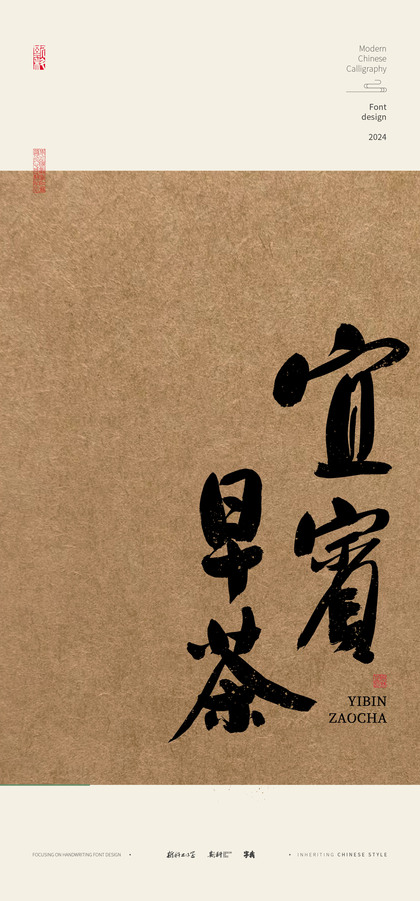 Modern
Chinese
Calligraphy
Font
design
2024
宜賓
早茶
YIBIN
ZAOCHA
FOCUSING ON HANDWRITING FONT DESIGN
INHERITING CHINESE STYLE